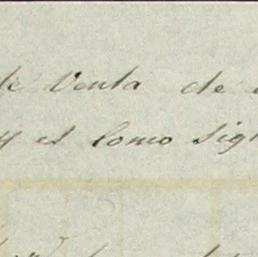 de Venta de
y es como sig